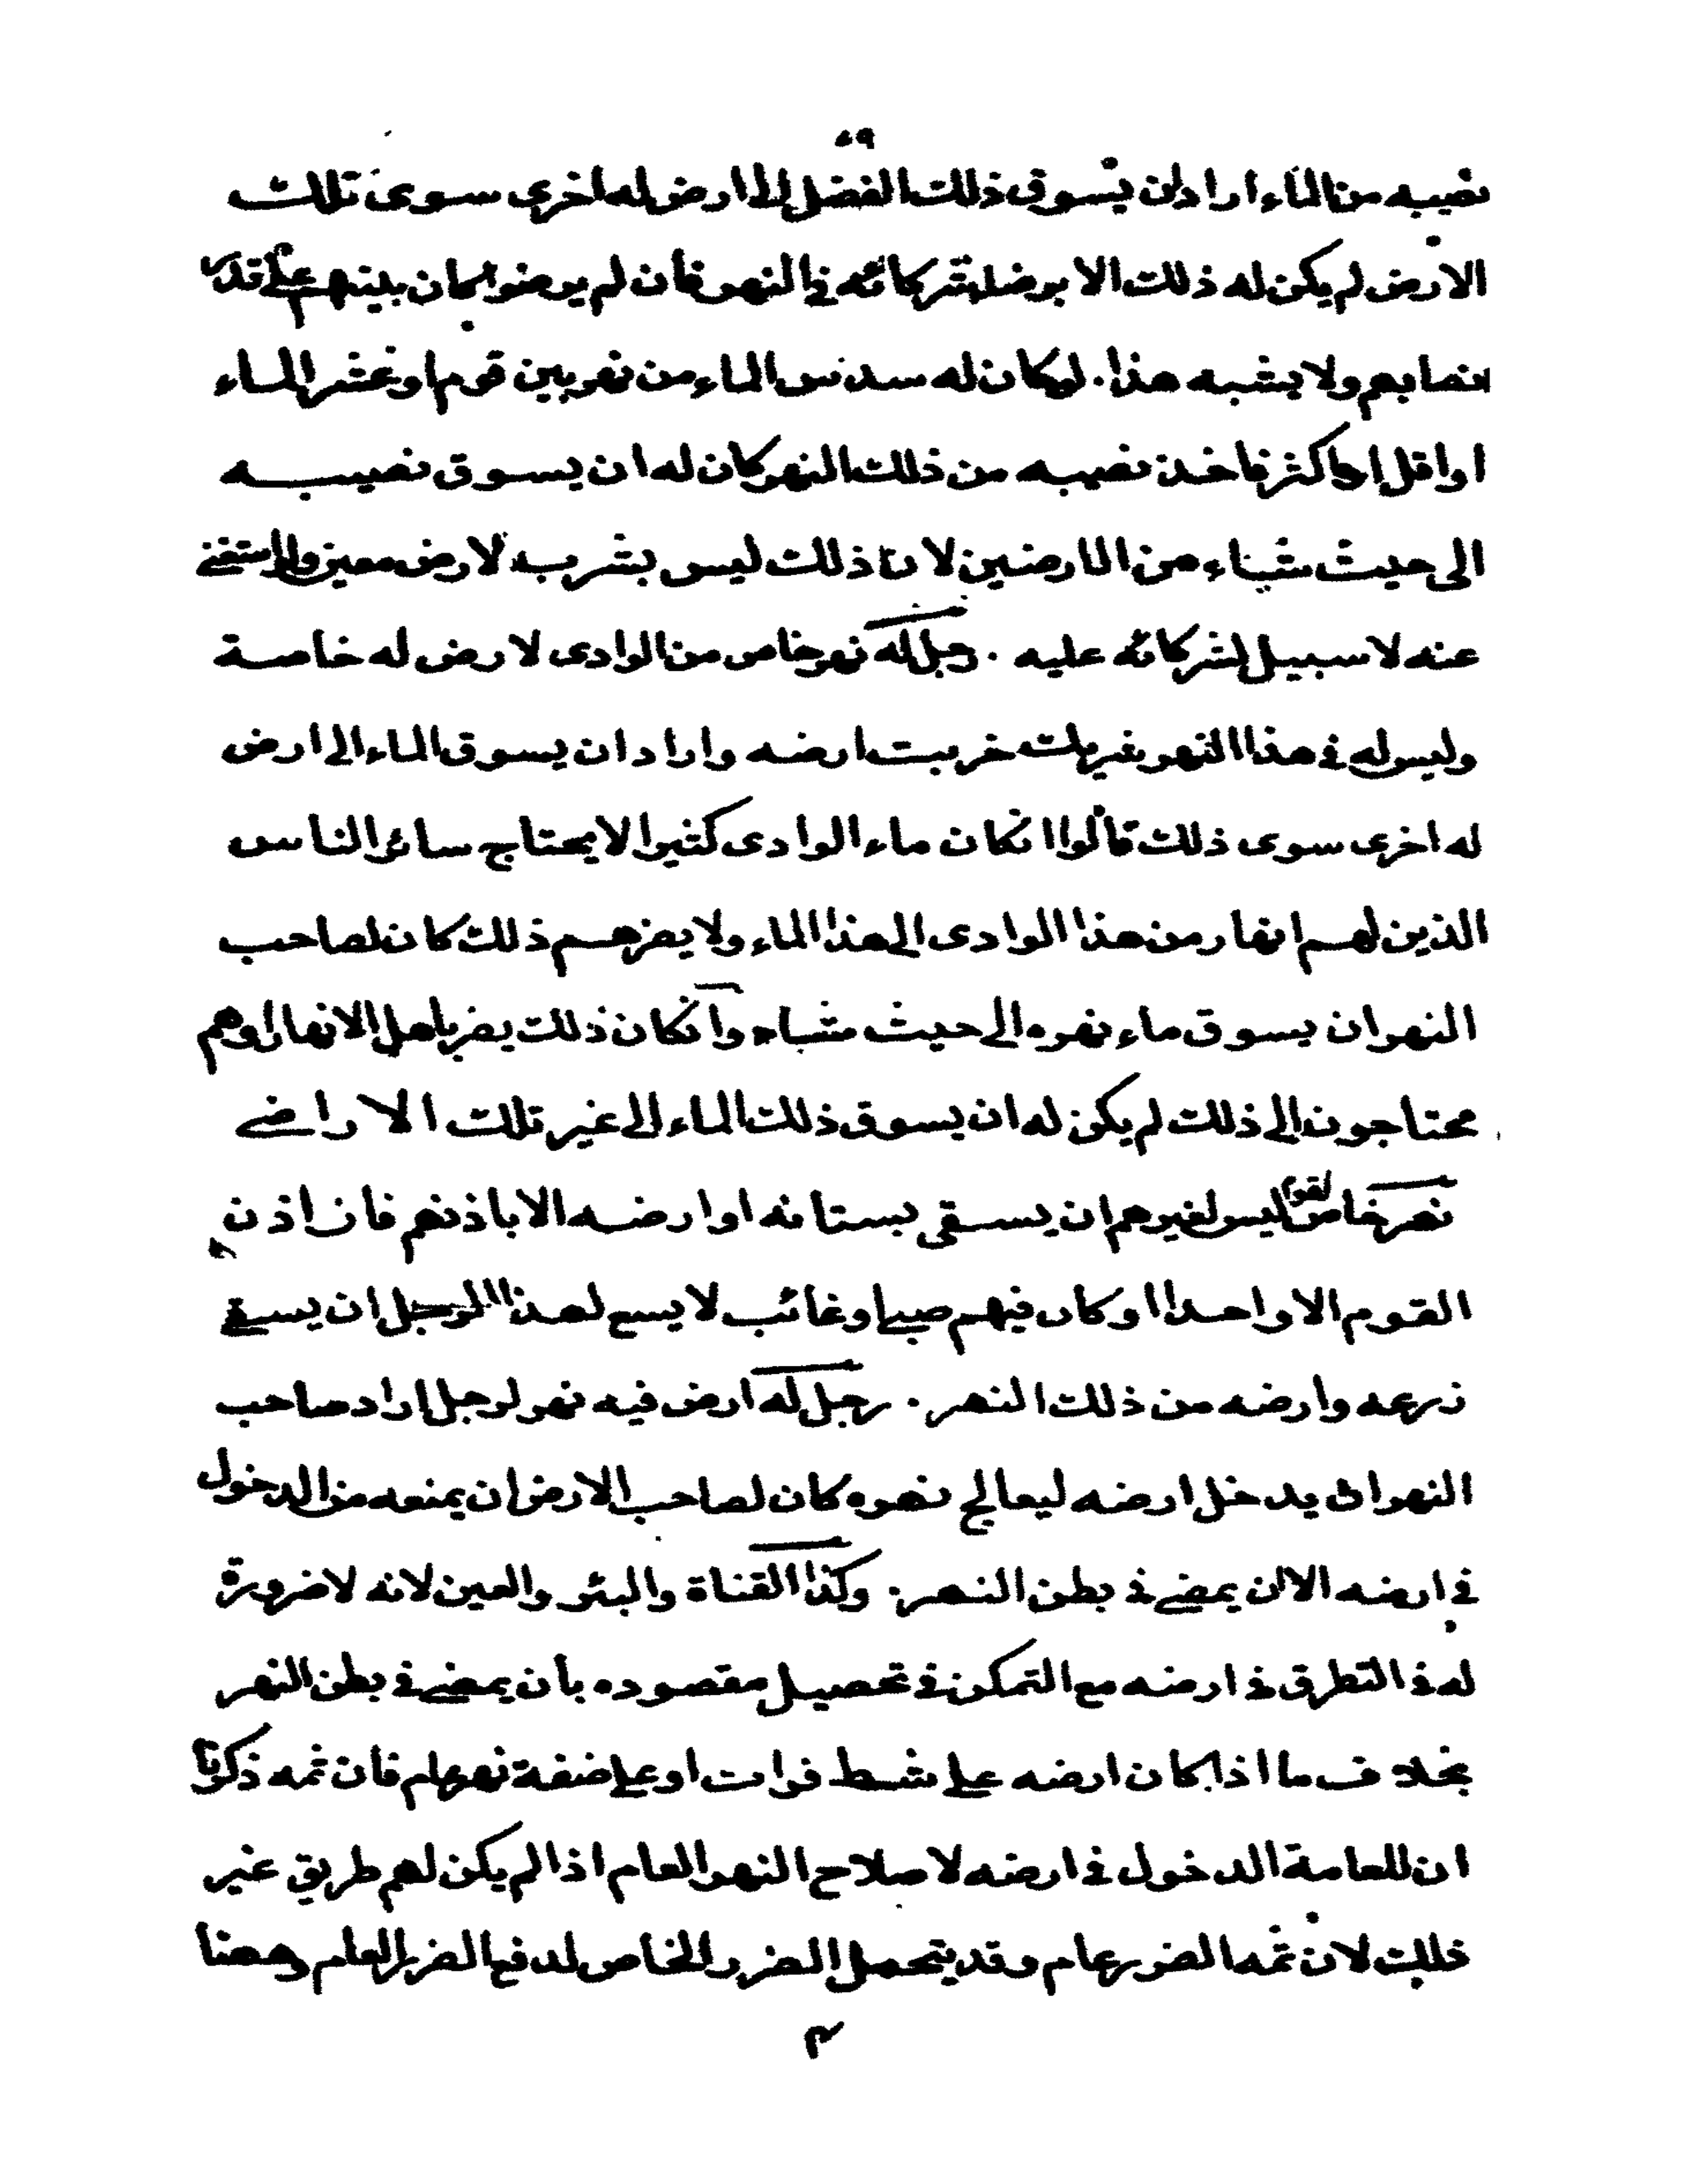 ٥٩
نصيبه من الماء اراد ان يسوق ذلك الفضل الى ارض له اخرى سوى تلك
الارض لم يكن له ذلك الا برضا شركائه في النهر فان لم يرضوا كان بينهم على قدر
انصابهم ولا يشبه هذا . لو كان له سدس الماء من نهر بين قوم او عشر الماء
او اقل او اكثر فاخذ نصيبه من ذلك النهر كان له ان يسوق نصيبه
الى حيث شاء من الارضين لان ذلك ليس بشرب لارض معين ولو استغنى
عنه لا سبيل لشركائه عليه . رجل له نهر خاص من الوادى لارض له خاصة
وليس له في هذا النهر شريك خربت ارضه واراد ان يسوق الماء الى ارض
له اخرى سوى ذلك قالوا ان كان ماء الوادى كثيرا لا يحتاج سائر الناس
الذين لهم انهار من هذا الوادى الى هذا الماء ولا يضرهم ذلك كان لصاحب
النهر ان يسوق ماء نهره الى حيث شاء وان كان ذلك يضر باهل الانهار او هم
محتاجون الى ذلك لم يكن له ان يسوق ذلك الماء الى غير تلك الاراضي
نهر خاص لقوم ليس لغيرهم ان يسقى بستانه او ارضه الا باذنهم فان اذن
القوم الا واحدا او كان فيهم صبي او غائب لا يسع لهذا الرجل ان يسقي
زرعه وارضه من ذلك النهر . رجل له ارض فيه نهر لرجل اراد صاحب
النهر ان يدخل ارضه ليعالج نهره كان لصاحب الارض ان يمنعه من الدخول
في ارضه الا ان يمضي في بطن النهر . وكذا القناة والبئر والعين لانه لا ضرورة
له في التطرق في ارضه مع التمكن في تحصيل مقصوده بأن يمضي في بطن النهر
بخلاف ما اذا كان ارضه على شط فرات او على ضفة نهر عام فان ثمه ذكرنا
ان للعامة الدخول في ارضه لاصلاح النهر العام اذا لم يكن لهم طريق غير
ذلك لان ثمه الضرر عام وقد يتحمل الضرر الخاص لدفع الضرر العام وههنا